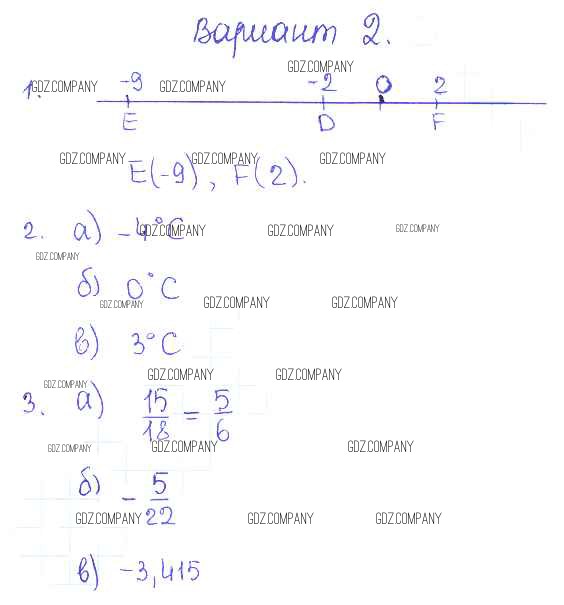 Вариант 2.
GDZ.COMPANY
1. GDZ.COMPANY -9 GDZ.COMPANY -2 0 2
E D F
GDZ.COMPANY GDZ.COMPANY GDZ.COMPANY
E(-9), F(2).
2. а) -4°C GDZ.COMPANY GDZ.COMPANY GDZ.COMPANY
GDZ.COMPANY
б) 0°C
GDZ.COMPANY GDZ.COMPANY GDZ.COMPANY
в) 3°C
GDZ.COMPANY GDZ.COMPANY
GDZ.COMPANY
3. а) 15/18 = 5/6
GDZ.COMPANY GDZ.COMPANY GDZ.COMPANY
б) - 5/22
GDZ.COMPANY GDZ.COMPANY GDZ.COMPANY
в) -3,415